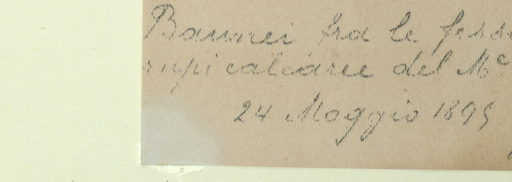 Baunei fra le fess
rupi calcaree del Mᵉ
24 Maggio 1895